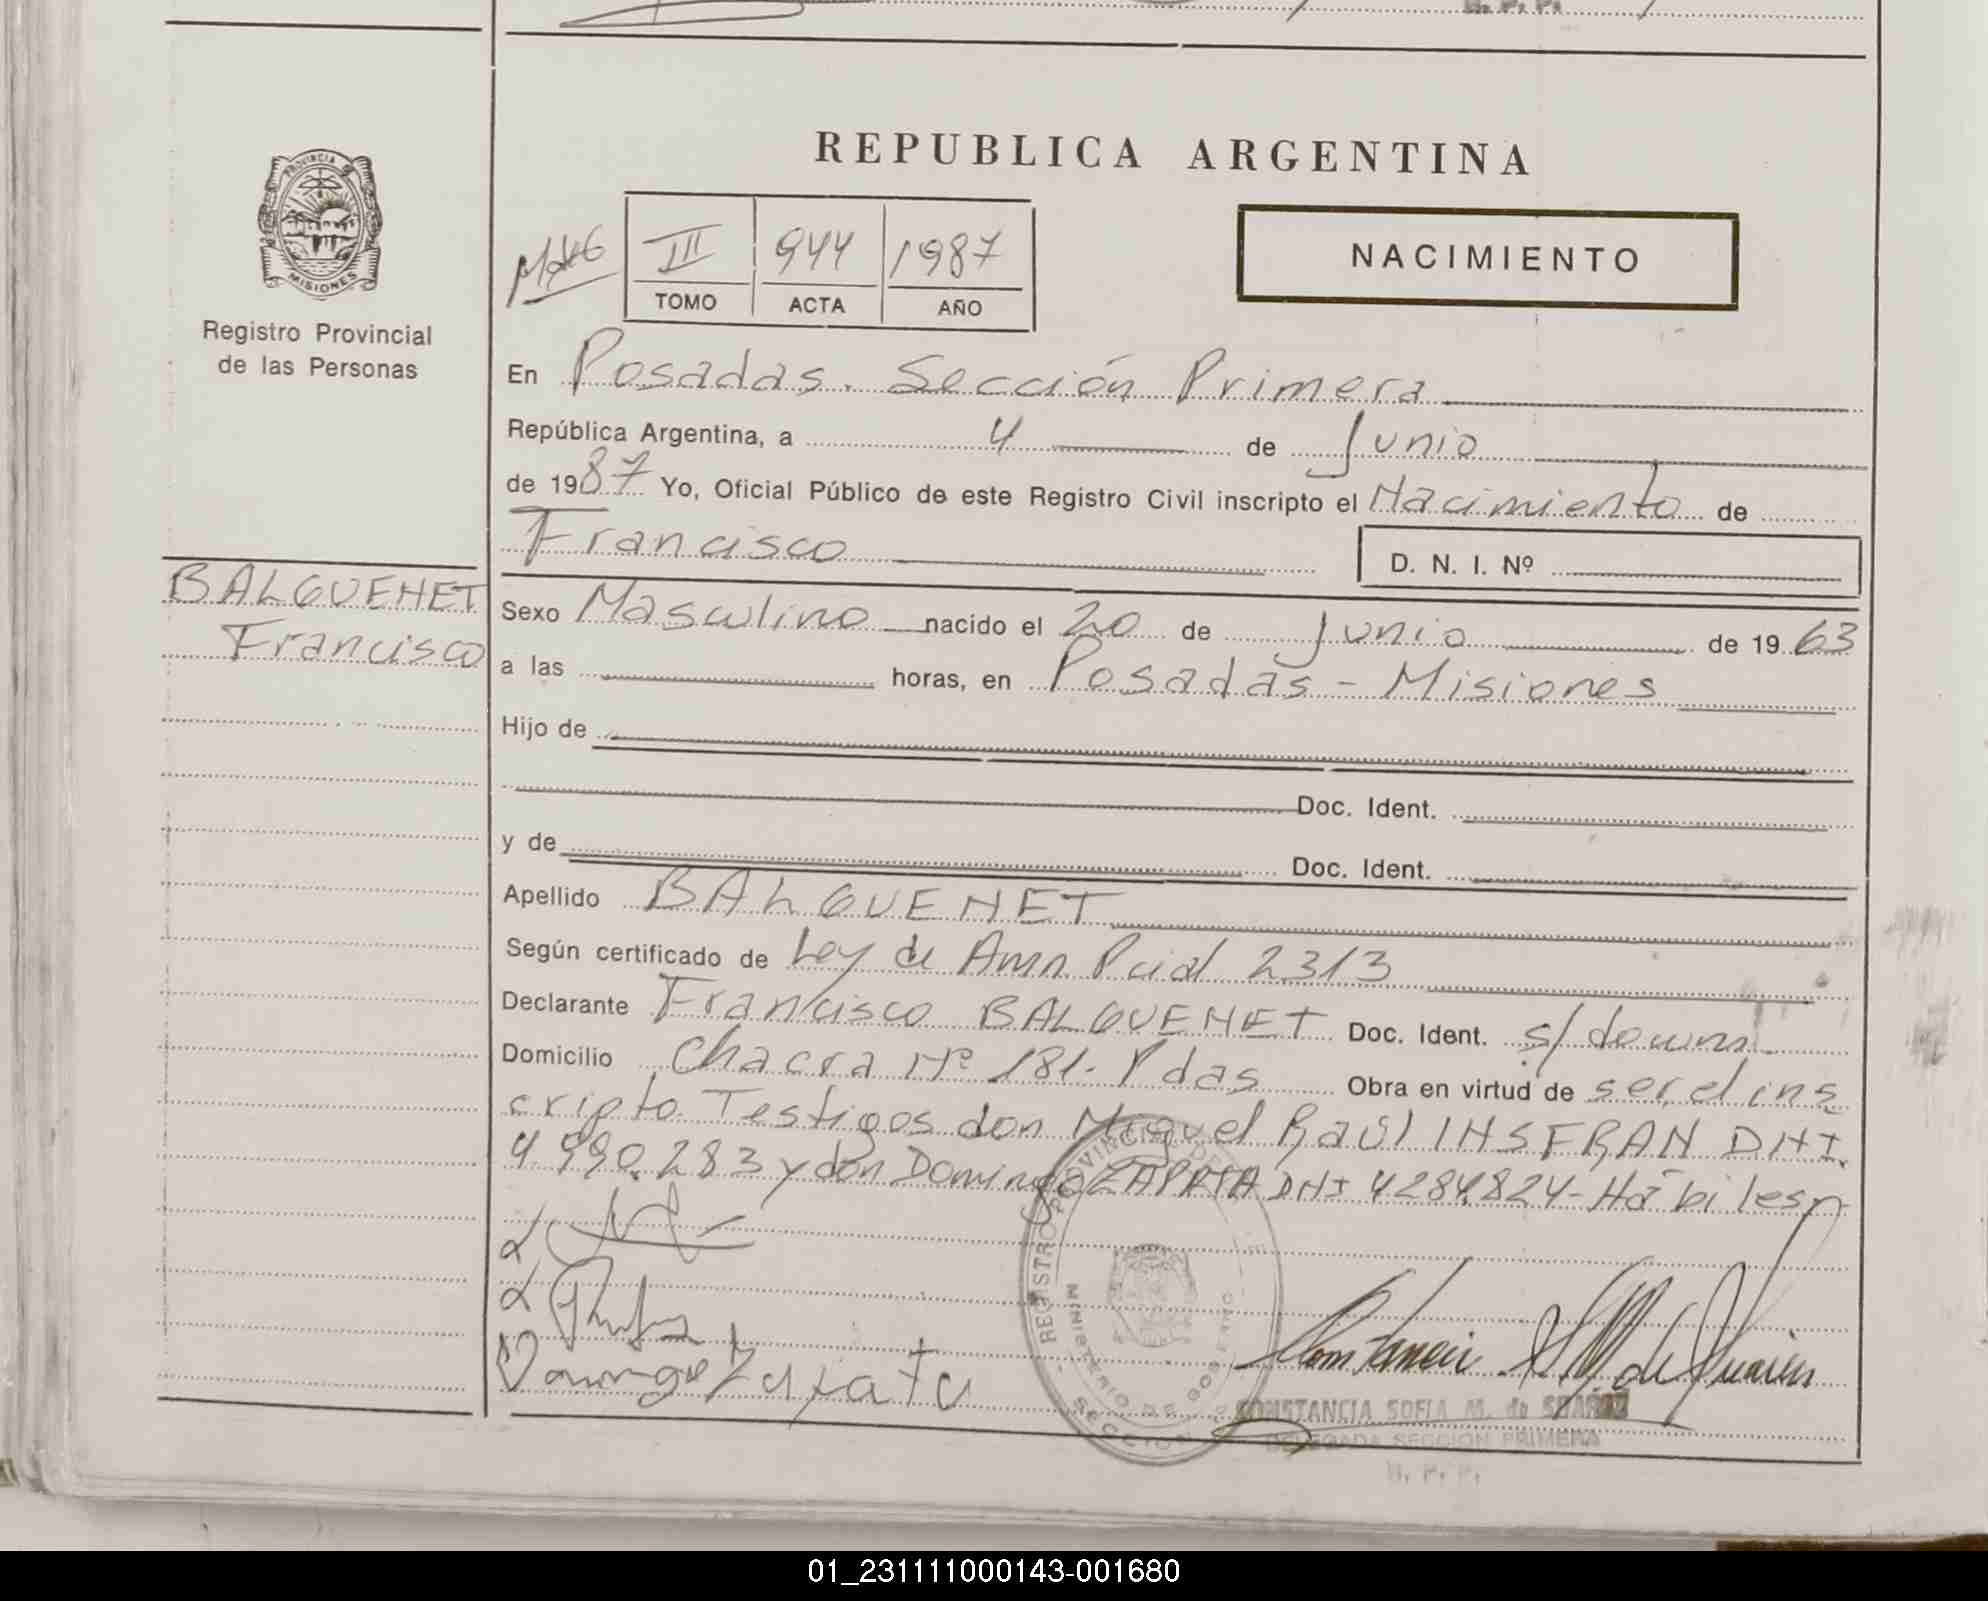 REPUBLICA ARGENTINA
PROVINCIA
MISIONES
Registro Provincial
de las Personas
III 944 1987
TOMO ACTA AÑO
NACIMIENTO
En Posadas. Sección Primera
República Argentina, a 4 de Junio
de 1987 Yo, Oficial Público de este Registro Civil inscripto el Nacimiento de
Francisco
D. N. I. Nº
BALGUENET
Francisco
Sexo Masculino nacido el 20 de Junio de 1963
a las horas, en Posadas - Misiones
Hijo de
Doc. Ident.
y de Doc. Ident.
Apellido BALGUENET
Según certificado de Ley de Amn Pcial 2313
Declarante Francisco BALGUENET Doc. Ident. s/
Domicilio Chacra Nº 181. Pdas Obra en virtud de ser el ins
cripto. Testigos don Miguel Raúl INSFRAN DNI.
4990.283 y don Domingo ZAPATA DNI 4284.824 - Hábiles
Domingo Zapata
REGISTRO PROVINCIAL DE
MINISTERIO DE GOBIERNO
SECCION
CONSTANCIA SOFIA M. de SUAREZ
DELEGADA SECCION PRIMERA
R. P. P.
01_231111000143-001680